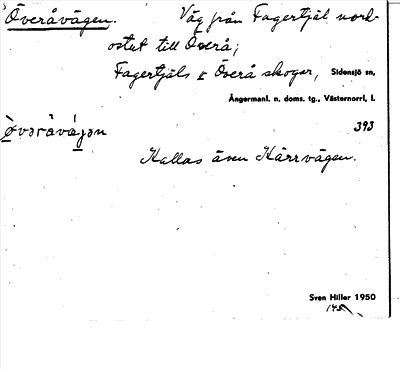 Överåvägen. Väg från Fagertjäl nord-
ostut till Överå;
Fagertjäls o. Överå skogar, Sidensjö sn,
Ångermanl. n. doms. tg., Västernorrl. l.
393
Kallas även Kärrvägen.
Sven Hiller 1950